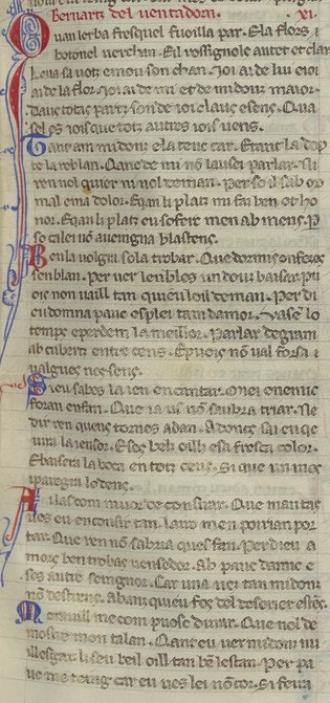 Bernartz del uentadorn. .xi.
Quan lerba fresquel fuoilla par. Ela flors
botonel uerchan. Eil rossignols autet et clar
Leua sa uotz emou son chan. Joi ai de lui eioi
ai de la flor. Joi ai de mi et de midonz maior.
Daus totas partz son de ioi claus esens. Qua
sel es iois que totz autres iois uens.
Tant am midonz ela tenc car. Et tant la dop
te la reblan. Canc de mi no lausei parlar. Ni
ren nol quier ni nol deman. Per so il sab o
mal e ma dolor. E qan li platz mi fai ben et ho
nor. E qan li platz eu sofere men ab mens. P
so calei no aueingna blastens.
Ben la uolgra sola trobar. Que dormis ofezes
senblan. Per uer lenbles un douz baisar. Pu
ois non uaill tan quieu loil deman. Per di
eu domna pauc esplei tam damor. Vasen lo
temps e perdem la meillor. Parlar degram
ab cubertz entre cens. E puois no ual forsa
ualgues nes sens.
Sieu sabes la ien encantar. Miei enemic
foran enfan. Que ia us no saubra triar. Ne
dir ren quens tornes adan. Adoncs sai eu qe
uira la iensor. E sos bels oills esa fresca color.
E baisera la boca en totz cens. Si que un mes
i paregra lo dens.
Ailas com muor de consirar. Que mantas
ues eu consir tan. Lairo men poirian por
tar. Que ren no sabria ques fan. Per dieu a
mors ben trobas uensedor. Ab paucs damic e
ses autre seingnor. Car una uez tan midons
no destreins. Abanz quieu fos del desirer
Merauill me com puosc durar. Que nol de
mostre mon talan. Cant eu uei midonz ni
lesgar. li seu beil oill tan be lestan. Per pa
uc me teing car eu ues lei no cor. Si feira